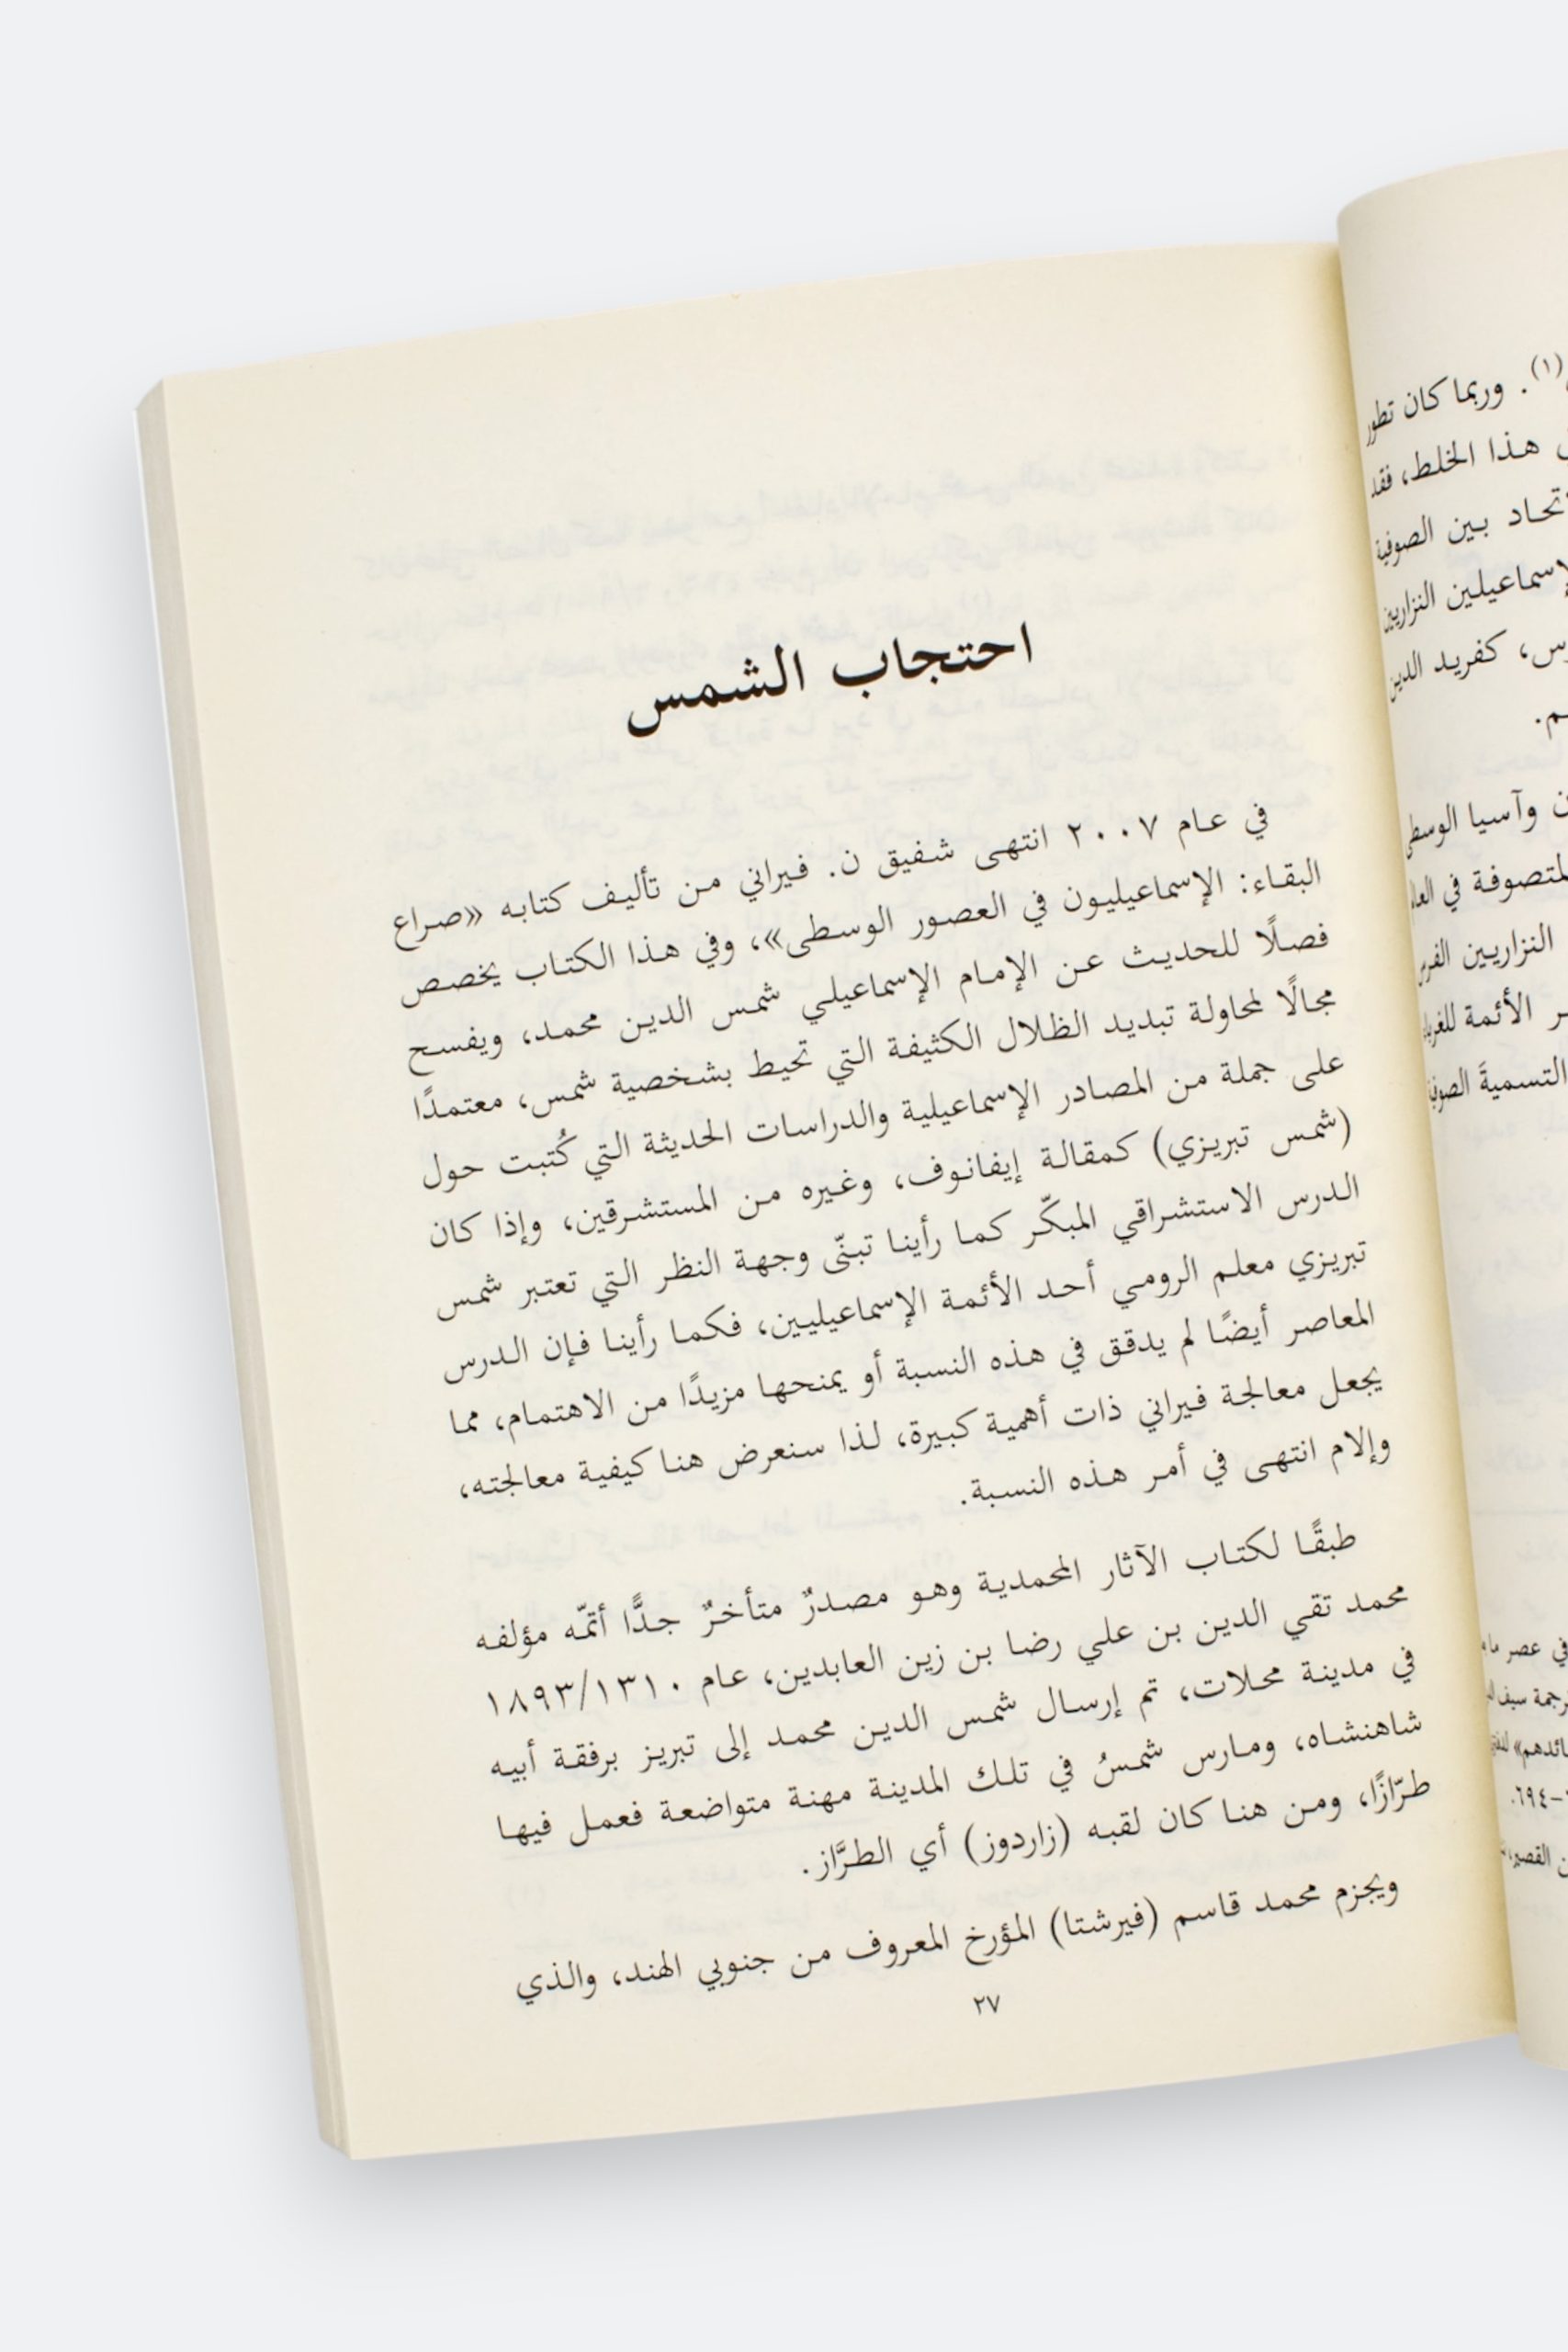 احتجاب الشمس
في عام ٢٠٠٧ انتهى شفيق ن. فيراني من تأليف كتابه «صراع
البقاء: الإسماعيليون في العصور الوسطى»، وفي هذا الكتاب يخصص
فصلًا للحديث عن الإمام الإسماعيلي شمس الدين محمد، ويفسح
مجالًا لمحاولة تبديد الظلال الكثيفة التي تحيط بشخصية شمس، معتمدًا
على جملة من المصادر الإسماعيلية والدراسات الحديثة التي كُتبت حول
(شمس تبريزي) كمقالة إيفانوف، وغيره من المستشرقين، وإذا كان
الدرس الاستشراقي المبكّر كما رأينا تبنّى وجهة النظر التي تعتبر شمس
تبريزي معلم الرومي أحد الأئمة الإسماعيليين، فكما رأينا فإن الدرس
المعاصر أيضًا لم يدقق في هذه النسبة أو يمنحها مزيدًا من الاهتمام، مما
يجعل معالجة فيراني ذات أهمية كبيرة، لذا سنعرض هنا كيفية معالجته،
وإلام انتهى في أمر هذه النسبة.
طبقًا لكتاب الآثار المحمدية وهو مصدرٌ متأخرٌ جدًّا أتمّه مؤلفه
محمد تقي الدين بن علي رضا بن زين العابدين، عام ١٨٩٣/١٣١٠
في مدينة محلات، تم إرسال شمس الدين محمد إلى تبريز برفقة أبيه
شاهنشاه، ومارس شمسُ في تلك المدينة مهنة متواضعة فعمل فيها
طرّازًا، ومن هنا كان لقبه (زاردوز) أي الطرَّاز.
ويجزم محمد قاسم (فيرشتا) المؤرخ المعروف من جنوبي الهند، والذي
٢٧
(١). وربما كان تطور
هذا الخلط، فقد
بين الصوفية
النزاريين
كفريد الدين
وآسيا الوسطى
في
النزاريين الفرس
الأئمة
التسميةَ
في عصر
ترجمة سيف
٦٩٤.